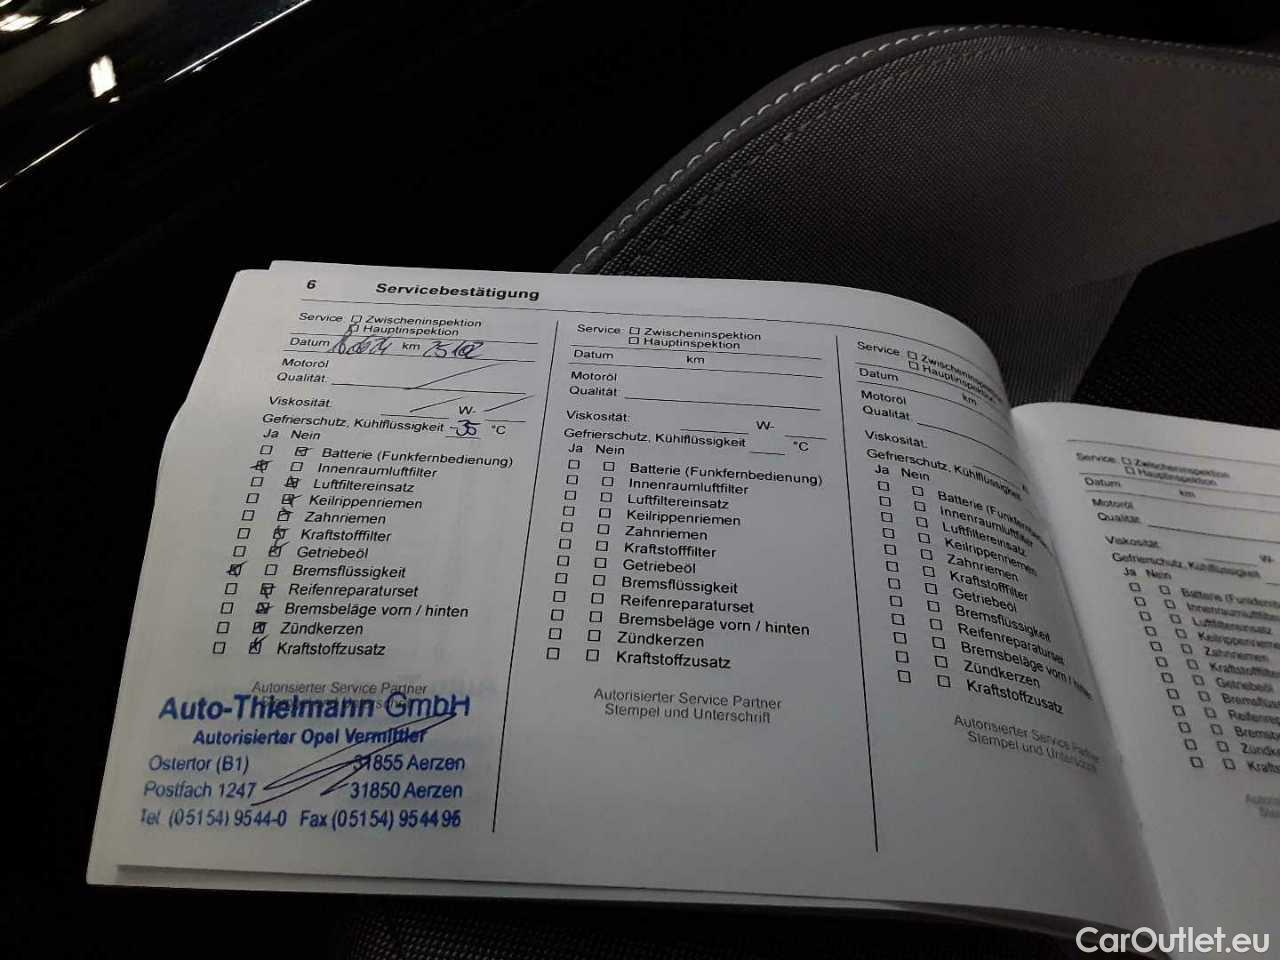 6 Servicebestätigung
Service: Zwischeninspektion
Hauptinspektion
Datum km
Motoröl
Qualität:
Viskosität: W-
Gefrierschutz, Kühlflüssigkeit -35 °C
Ja Nein
Batterie (Funkfernbedienung)
Innenraumluftfilter
Luftfiltereinsatz
Keilrippenriemen
Zahnriemen
Kraftstofffilter
Getriebeöl
Bremsflüssigkeit
Reifenreparaturset
Bremsbeläge vorn / hinten
Zündkerzen
Kraftstoffzusatz
Autorisierter Service Partner
Auto-Thielmann GmbH
Autorisierter Opel Vermittler
Ostertor (B1) 31855 Aerzen
Postfach 1247 31850 Aerzen
Tel. (05154) 9544-0 Fax (05154) 954496
Service: Zwischeninspektion
Hauptinspektion
Datum km
Motoröl
Qualität:
Viskosität: W-
Gefrierschutz, Kühlflüssigkeit °C
Ja Nein
Batterie (Funkfernbedienung)
Innenraumluftfilter
Luftfiltereinsatz
Keilrippenriemen
Zahnriemen
Kraftstofffilter
Getriebeöl
Bremsflüssigkeit
Reifenreparaturset
Bremsbeläge vorn / hinten
Zündkerzen
Kraftstoffzusatz
Autorisierter Service Partner
Stempel und Unterschrift
Service: Zwischeninspektion
Hauptinspektion
Datum km
Motoröl
Qualität:
Viskosität:
Gefrierschutz, Kühlflüssigkeit
Ja Nein
Batterie
Innenraumluftfilter
Luftfiltereinsatz
Keilrippenriemen
Zahnriemen
Kraftstofffilter
Getriebeöl
Bremsflüssigkeit
Reifenreparaturset
Bremsbeläge vorn / hinten
Zündkerzen
Kraftstoffzusatz
Autorisierter Service Partner
Stempel und
Service: Zwischeninspektion
Hauptinspektion
Datum km
Motoröl
Qualität:
Viskosität: W-
Gefrierschutz, Kühlflüssigkeit
Ja Nein
Batterie
Innenraumluftfilter
Luftfiltereinsatz
Keilrippenriemen
Zahnriemen
Kraftstofffilter
Getriebeöl
CarOutlet.eu